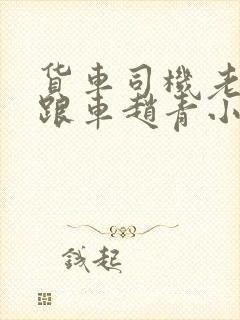 货车司機老
跟車趙青小
錢起